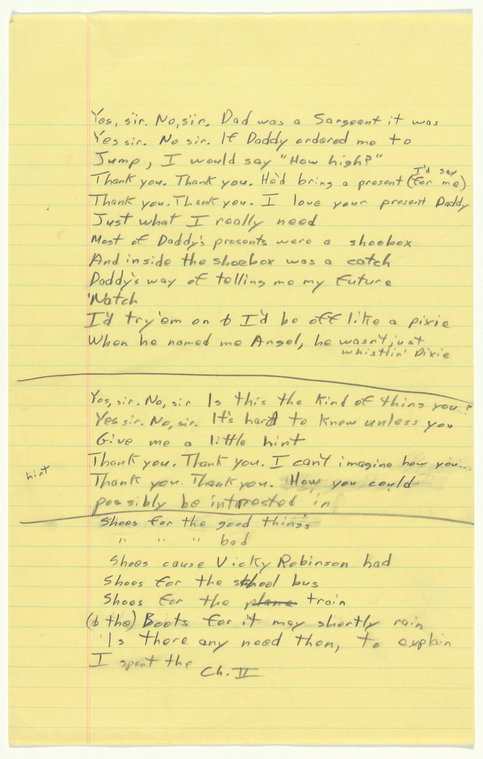 Yes, sir. No, sir. Dad was a Sargeent it was
Yes sir. No sir. If Daddy ordered me to
Jump, I would say "How high?"
I'd say
Thank you. Thank you. He'd bring a present (for me)
Thank you. Thank you. I love your present Daddy
Just what I really need
Most of Daddy's presents were a shoebox
And inside the shoebox was a catch
Daddy's way of telling me my future
'Natch
I'd try 'em on & I'd be off like a pixie
When he named me Angel, he wasn't just
whistlin' Dixie
Yes, sir. No, sir Is this the kind of thing you..?
Yes sir. No, sir. It's hard to know unless you
Give me a little hint
Thank you. Thank you. I can't imagine how you...
hint
Thank you. Thank you. How you could
possibly be interested in
Shoes for the good things
" " " bad
Shoes cause Vicky Robinson had
Shoes for the school bus
Shoes for the plane train
(& the) Boots for it may shortly rain
Is there any need then, to explain
I spent the
Ch. II